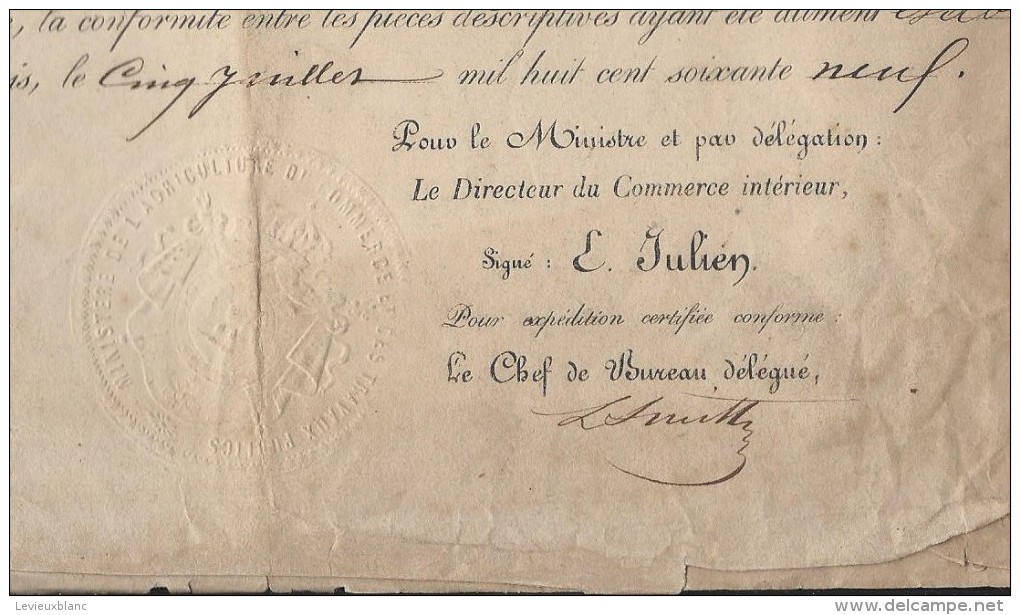 , la conformité entre les pièces descriptives ayant été dûment
is, le Cinq Juillet mil huit cent soixante neuf.
Pour le Ministre et par délégation :
Le Directeur du Commerce intérieur,
Signé : E. Julien.
Pour expédition certifiée conforme :
Le Chef de Bureau délégué,
MINISTÈRE DE L'AGRICULTURE DU COMMERCE ET DES TRAVAUX PUBLICS
Levieuxblanc
www.delcampe.net